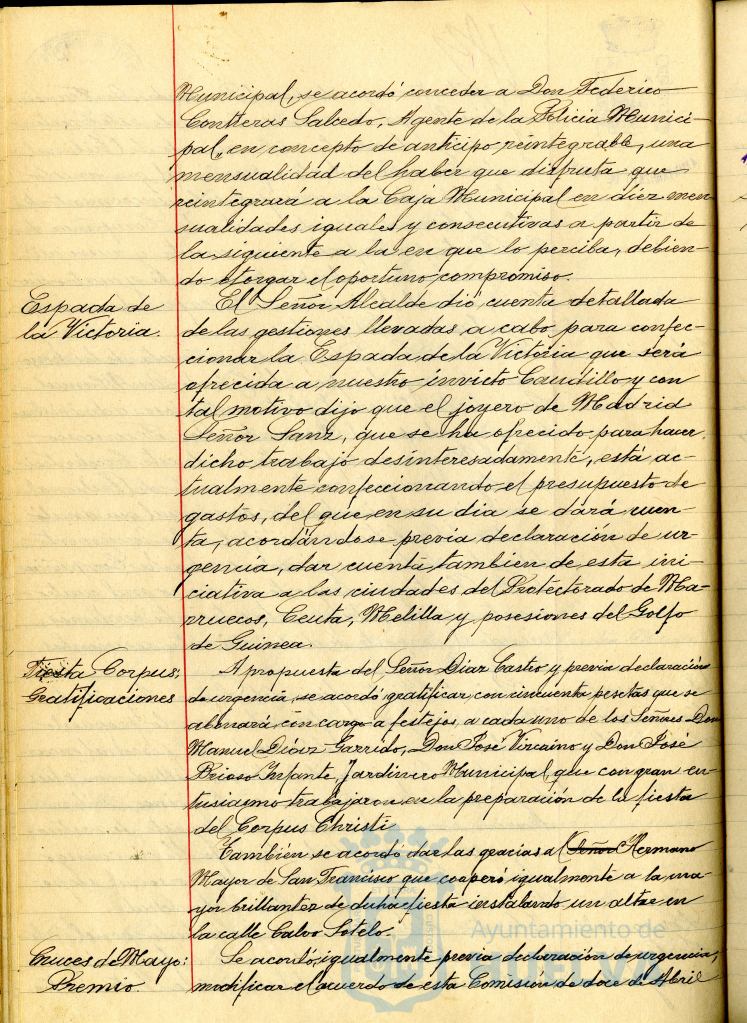 Municipal, se acordó conceder a Don Federico
Contreras Salcedo, Agente de la Policia Munici-
pal, en concepto de anticipo reintegrable, una
mensualidad del haber que disfruta que
reintegrará a la Caja Municipal en diez men
sualidades iguales y consecutivas a partir de
la siguiente a la en que lo perciba, debien-
do otorgar el oportuno compromiso.
Espada de
la Victoria.
El Señor Alcalde dió cuenta detallada
de las gestiones llevadas a cabo para confec-
cionar la Espada de la Victoria que será
ofrecida a nuestro invicto Caudillo y con
tal motivo dijo que el joyero de Madrid
Señor Sanz, que se ha ofrecido para hacer
dicho trabajo desinteresadamente, está ac-
tualmente confeccionando el presupuesto de
gastos, del que en su dia se dará cuen-
ta, acordándose previa declaración de ur-
gencia, dar cuenta tambien de esta ini-
ciativa a las ciudades del Protectorado de Ma-
rruecos, Ceuta, Melilla y posesiones del Golfo
de Guinea.
Fiesta Corpus:
Gratificaciones
A propuesta del Señor Diaz Castro y previa declaración
de urgencia se acordó gratificar con cincuenta pesetas que se
abonará con cargo a festejos, a cada uno de los Señores Don
Manuel Garrido, Don José Vizcaino y Don José
Brioso Infante, Jardinero Municipal, que con gran en-
tusiasmo trabajaron en la preparación de la fiesta
del Corpus Christi
Tambien se acordó dar las gracias al Señor Hermano
Mayor de San Francisco que cooperó igualmente a la ma-
yor brillantez de dicha fiesta instalando un altar en
la calle Calvo Sotelo.
Cruces de Mayo:
Premio.
Se acordó, igualmente previa declaración de urgencia,
modificar el acuerdo de esta Comisión de doce de Abril
Ayuntamiento de
HUELVA